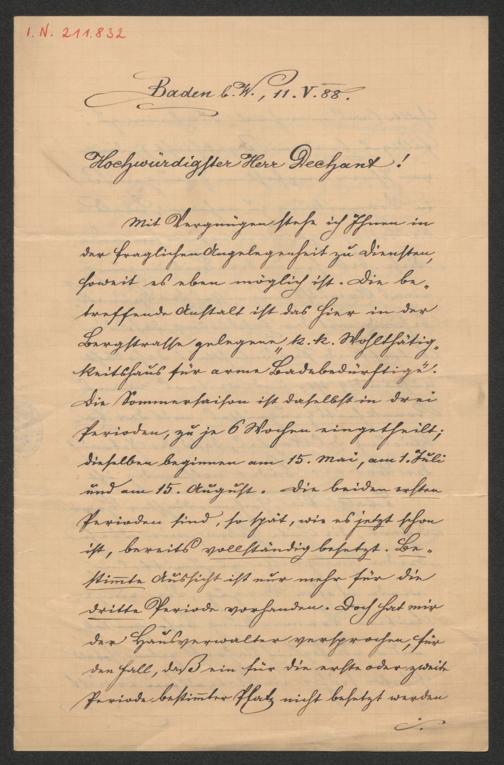 I. N. 211.832
Baden b. W., 11. V. 88.
Hochwürdigster Herr Dechant!
Mit Vergnügen stehe ich Ihnen in
der fraglichen Angelegenheit zu Diensten,
soweit es eben möglich ist. Die be-
treffende Anstalt ist das hier in der
Bergstrasse gelegene „k. k. Wohlthätig-
keitshaus für arme Badebedürftige“.
Die Sommersaison ist daselbst in drei
Perioden, zu je 6 Wochen eingetheilt;
dieselben beginnen am 15. Mai, am 1. Juli
und am 15. August. Die beiden ersten
Perioden sind, so spät, wie es jetzt schon
ist, bereits vollständig besetzt. Be-
stimmte Aussicht ist nur mehr für die
dritte Periode vorhanden. Doch hat mir
der Hausverwalter versprochen, für
den Fall, daß ein für die erste oder zweite
Periode bestimmter Platz nicht besetzt werden